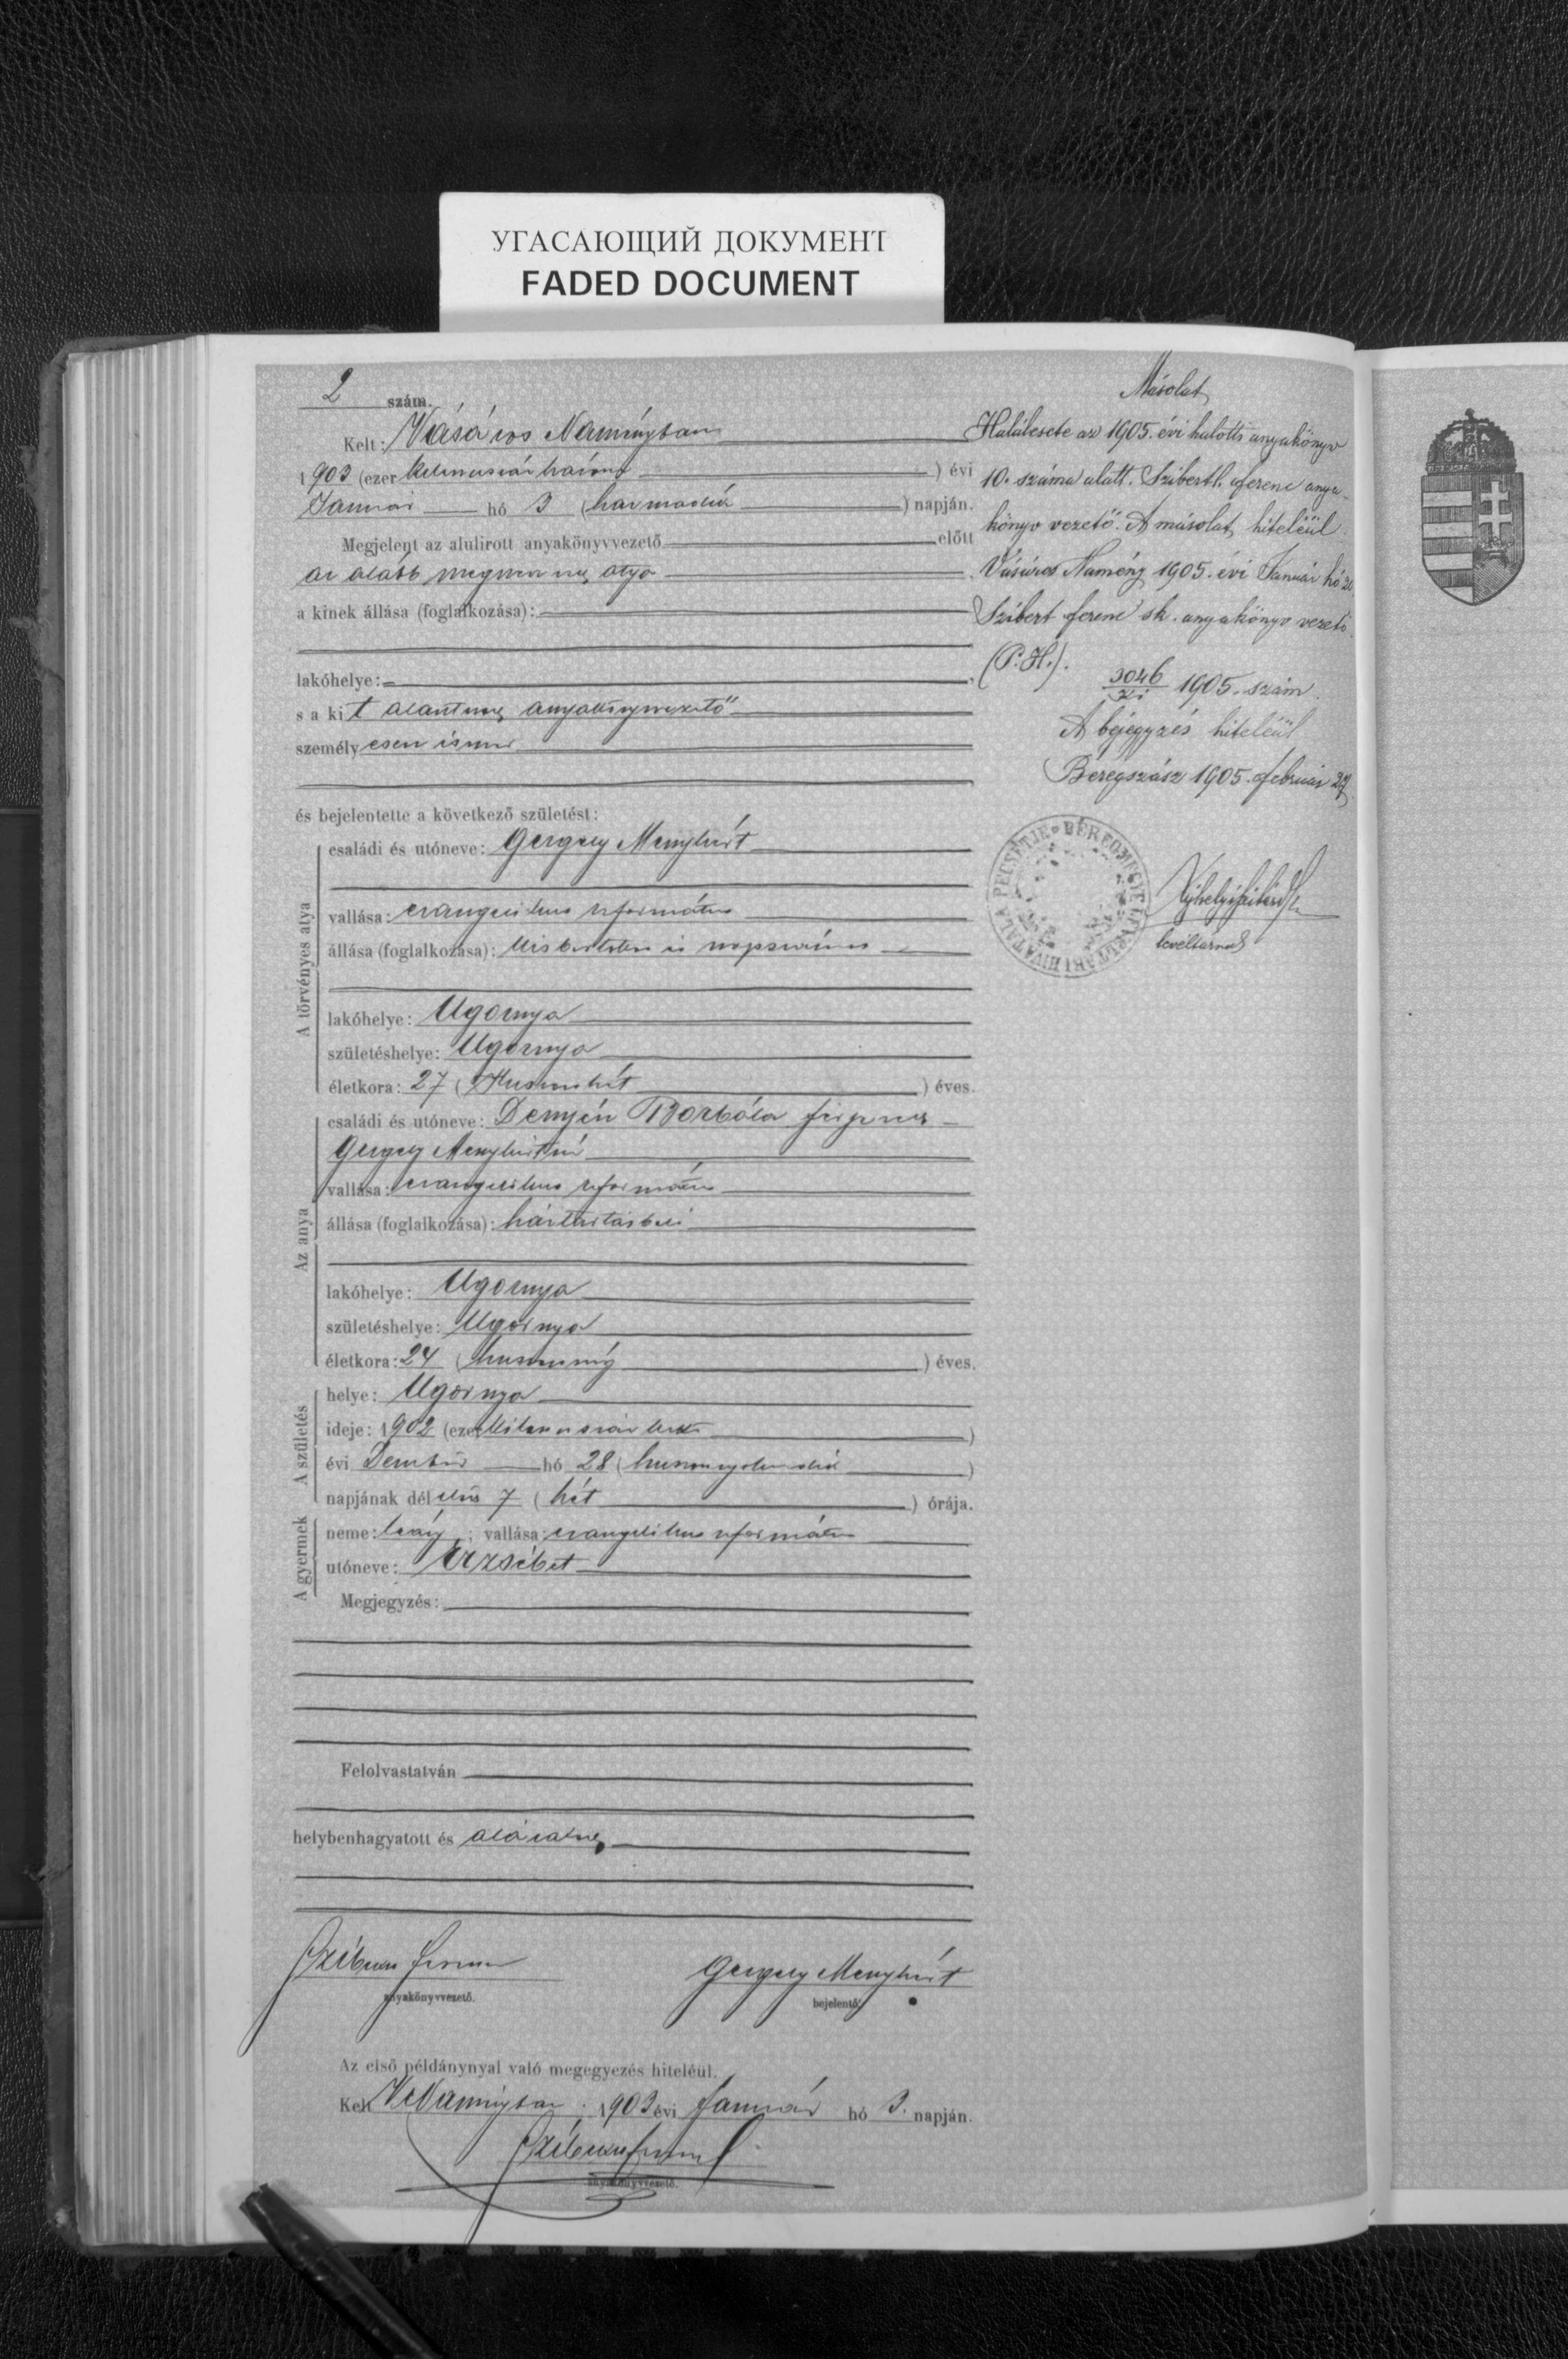 УГАСАЮЩИЙ ДОКУМЕНТ
FADED DOCUMENT
2 szám.
Kelt: Vásáros Naményban
1903 (ezer kilenczszáz három) évi
Január hó 3 (harmadik) napján.
Megjelent az alulirott anyakönyvvezető előtt
az alább megnevezett atya
a kinek állása (foglalkozása):
lakóhelye:
s a kit alantirt anyakönyvvezető
személyesen ismer
és bejelentette a következő születést:
A törvényes atya
családi és utóneve: Gergely Menyhért
vallása: evangelikus református
állása (foglalkozása): kisbirtokos és napszámos
lakóhelye: Ugornya
születéshelye: Ugornya
életkora: 27 (Huszonhét) éves.
Az anya
családi és utóneve: Demjén Borbála férjezett
Gergely Menyhértné
vallása: evangelikus református
állása (foglalkozása): háztartásbeli
lakóhelye: Ugornya
születéshelye: Ugornya
életkora: 24 (huszonnégy) éves.
A születés
helye: Ugornya
ideje: 1902 (ezer kilenczszáz kettő)
évi Deczember hó 28 (huszonnyolczadik)
napjának délelőtt 7 (hét) órája.
A gyermek
neme: leány; vallása: evangelikus református
utóneve: Erzsébet
Megjegyzés:
Felolvastatván
helybenhagyatott és aláíratott
Gergely Menyhért
anyakönyvvezető. bejelentő.
Az első példánynyal való megegyezés hiteléül.
Kelt VNaményban 1903 évi Január hó 3. napján.
anyakönyvvezető.
Másolat
Halálesete az 1905. évi halotti anyakönyv
10. száma alatt. Ferenc anya-
könyv vezető. A másolat hiteléül
Vásáros Namény 1905. évi Január hó
Ferenc sk. anyakönyv vezető
(P.H.).
3046 1905. szám
A bejegyzés hiteléül
Beregszász 1905. február 27
BEREGMEGYE LEVÉLTÁRI HIVATALA PECSÉTJE
levéltárnok